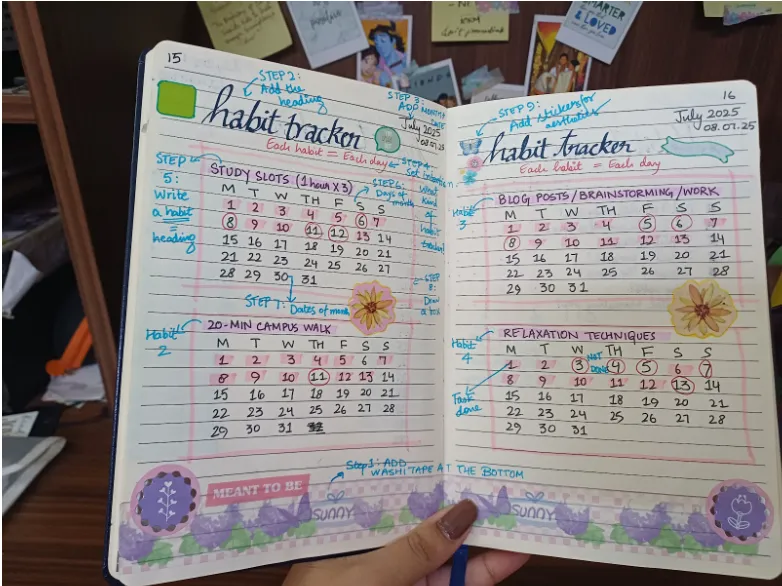 - NI
KKM
WONDER
SMARTER
& LOVED
15
STEP 2:
Add the
heading
STEP 3:
ADD MONTH
DATE
July 2025
08.07.25
habit tracker
Each habit = Each day
STEP 4
Set Intention
What
kind
of
habit
tracker
STEP
5:
Write
a habit
=
heading
STUDY SLOTS (1 hour X 3)
STEP 6:
Days of
month
M T W TH F S S
1 2 3 4 5 6 7
8 9 10 11 12 13 14
15 16 17 18 19 20 21
21 22 23 24 25 26 27
28 29 30 31
STEP 7: Dates of month
STEP
8:
Habit
2
20-MIN CAMPUS WALK
M T W TH F S S
1 2 3 4 5 6 7
8 9 10 11 12 13 14
15 16 17 18 19 20 21
22 23 24 25 26 27 28
29 30 31
Step 1: ADD
WASHI TAPE AT THE BOTTOM
MEANT TO BE
SUNNY
16
STEP 9:
Add stickers for
aesthetics
July 2025
08.07.25
habit tracker
Each habit = Each day
Habit
3
BLOG POSTS/BRAINSTORMING/WORK
M T W TH F S S
1 2 3 4 5 6 7
8 9 10 11 12 13 14
15 16 17 18 19 20 21
22 23 24 25 26 27 28
29 30 31
Habit
4
RELAXATION TECHNIQUES
M T W TH F S S
1 2 3 NOT DONE 4 5 6 7
8 9 10 11 12 13 14
15 16 17 18 19 20 21
22 23 24 25 26 27 28
29 30 31
Task
done
SUNNY